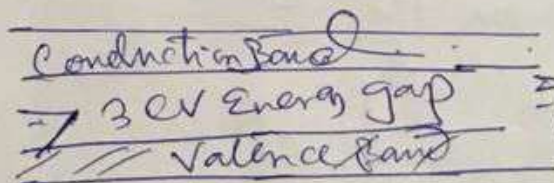 Conduction Band
3 eV Energy gap
Valence Band